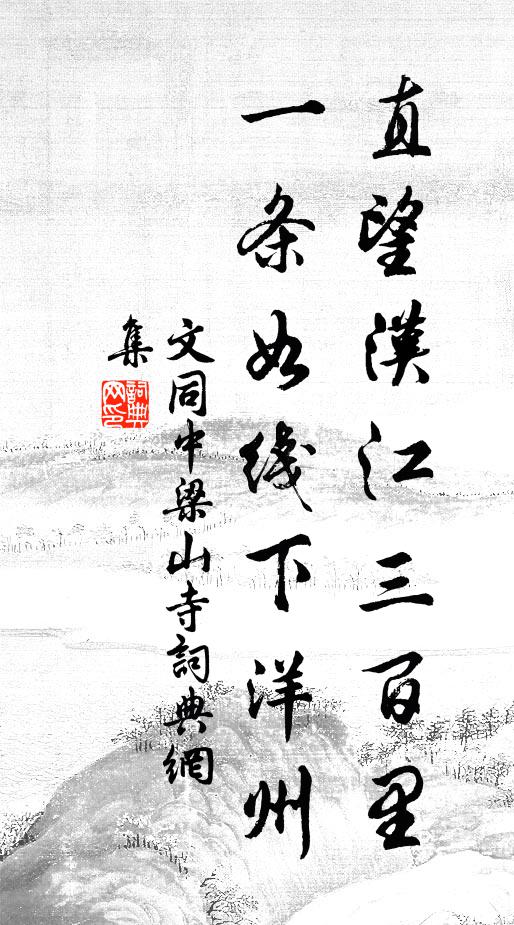 直望漢江三百里
一条如线下洋州
文同中梁山寺詞典網
集
詞典网印